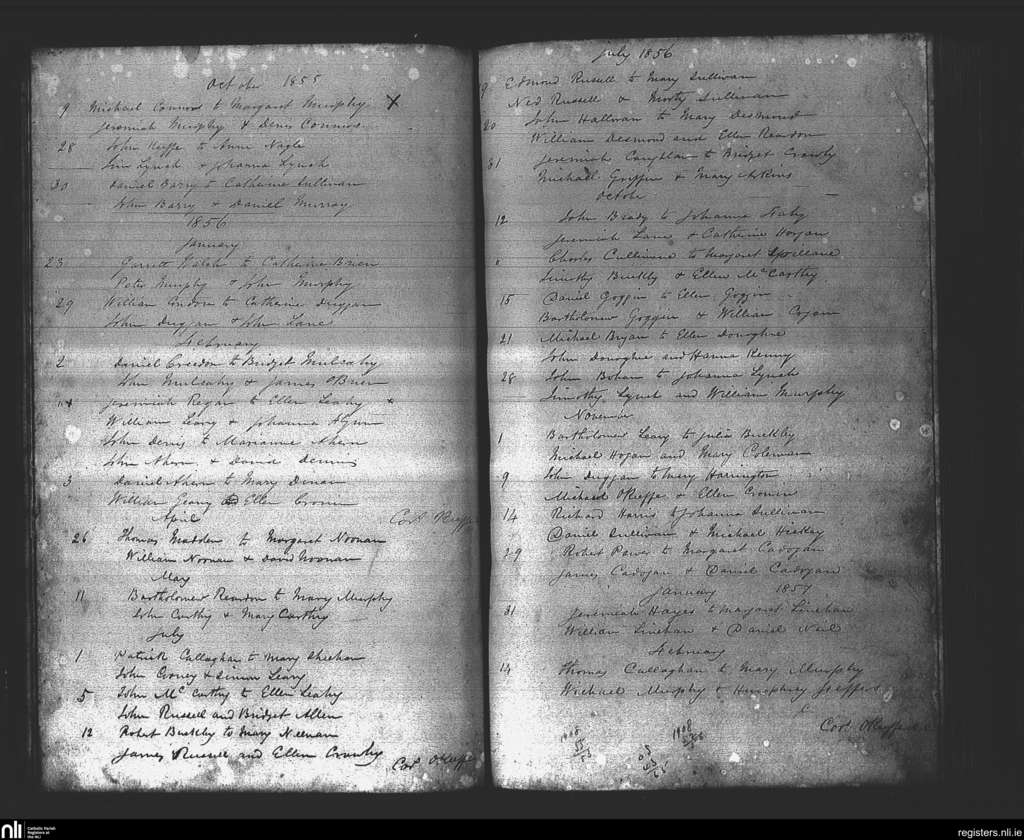 October 1855
9 Michael Connors to Margaret Murphy X
Jeremiah Murphy & Denis Connors
28 John Keeffe to Anne Nagle
Jim Lynch & Johanna Lynch
30 Daniel Barry to Catherine Sullivan
John Barry & Daniel Murray
1856
January
23 Garrett Walsh to Catherine Brien
Peter Murphy & John Murphy
29 William Condon to Catherine Duggan
John Duggan & John Lane
February
2 Daniel Creedon to Bridget Mulcahy
John Mulcahy & James OBrien
Jeremiah Regan to Ellen Leahy
William Leary & Johanna
John Denis to Marianne Ahern
John Ahern & David Dennis
3 Daniel Ahern to Mary Dinan
William Geany Ellen Cronin
April
Cors Keeffe
26 Thomas Madden to Margaret Noonan
William Noonan & David Noonan
May
11 Bartholomew Reardon to Mary Murphy
John Carthy & Mary Carthy
July
1 Patrick Callaghan to Mary Sheehan
John & Simon Leary
5 John McCarthy to Ellen Leahy
John Russell and Bridget Allen
12 Robert Buckley to Mary Neenan
James Russell and Ellen Crowly
Cors OKeeffe
July 1856
9 Edmond Russell to Mary Sullivan
Ned Russell & Morty Sullivan
20 John Hallman to Mary Desmond
William Desmond and Ellen Reardon
31 Jeremiah Coughlan to Bridget Crowly
Michael Griffin & Mary Atkins
October
12 John Brady to Johanna Fahy
Jeremiah Lane & Catherine Horgan
Charles Cullinane to Margaret Spillane
Timothy Buckley & Ellen McCarthy
15 Daniel Goggin to Ellen Goggin
Bartholomew Goggin & William Cogan
21 Michael Bryan to Ellen Donoghue
John Donoghue and Hanna Kenny
28 John Bohan to Johanna Lynch
Timothy Lynch and William Murphy
November
1 Bartholomew Leary to Julia Buckley
Michael Hogan and Mary Coleman
9 John Duggan to Mary Harrington
Michael OKeeffe & Ellen Cronin
14 Richard Harris to Johanna Sullivan
Daniel Sullivan & Michael Hickey
29 Robert Power to Margaret Cadogan
James Cadogan & Daniel Cadogan
January 1857
31 Jeremiah Hayes to Margaret Linehan
William Linehan & Daniel Neil
February
14 Thomas Callaghan to Mary Murphy
Michael Murphy & Humphrey
Cors OKeeffe
nli
Catholic Parish
Registers at
the NLI
registers.nli.ie